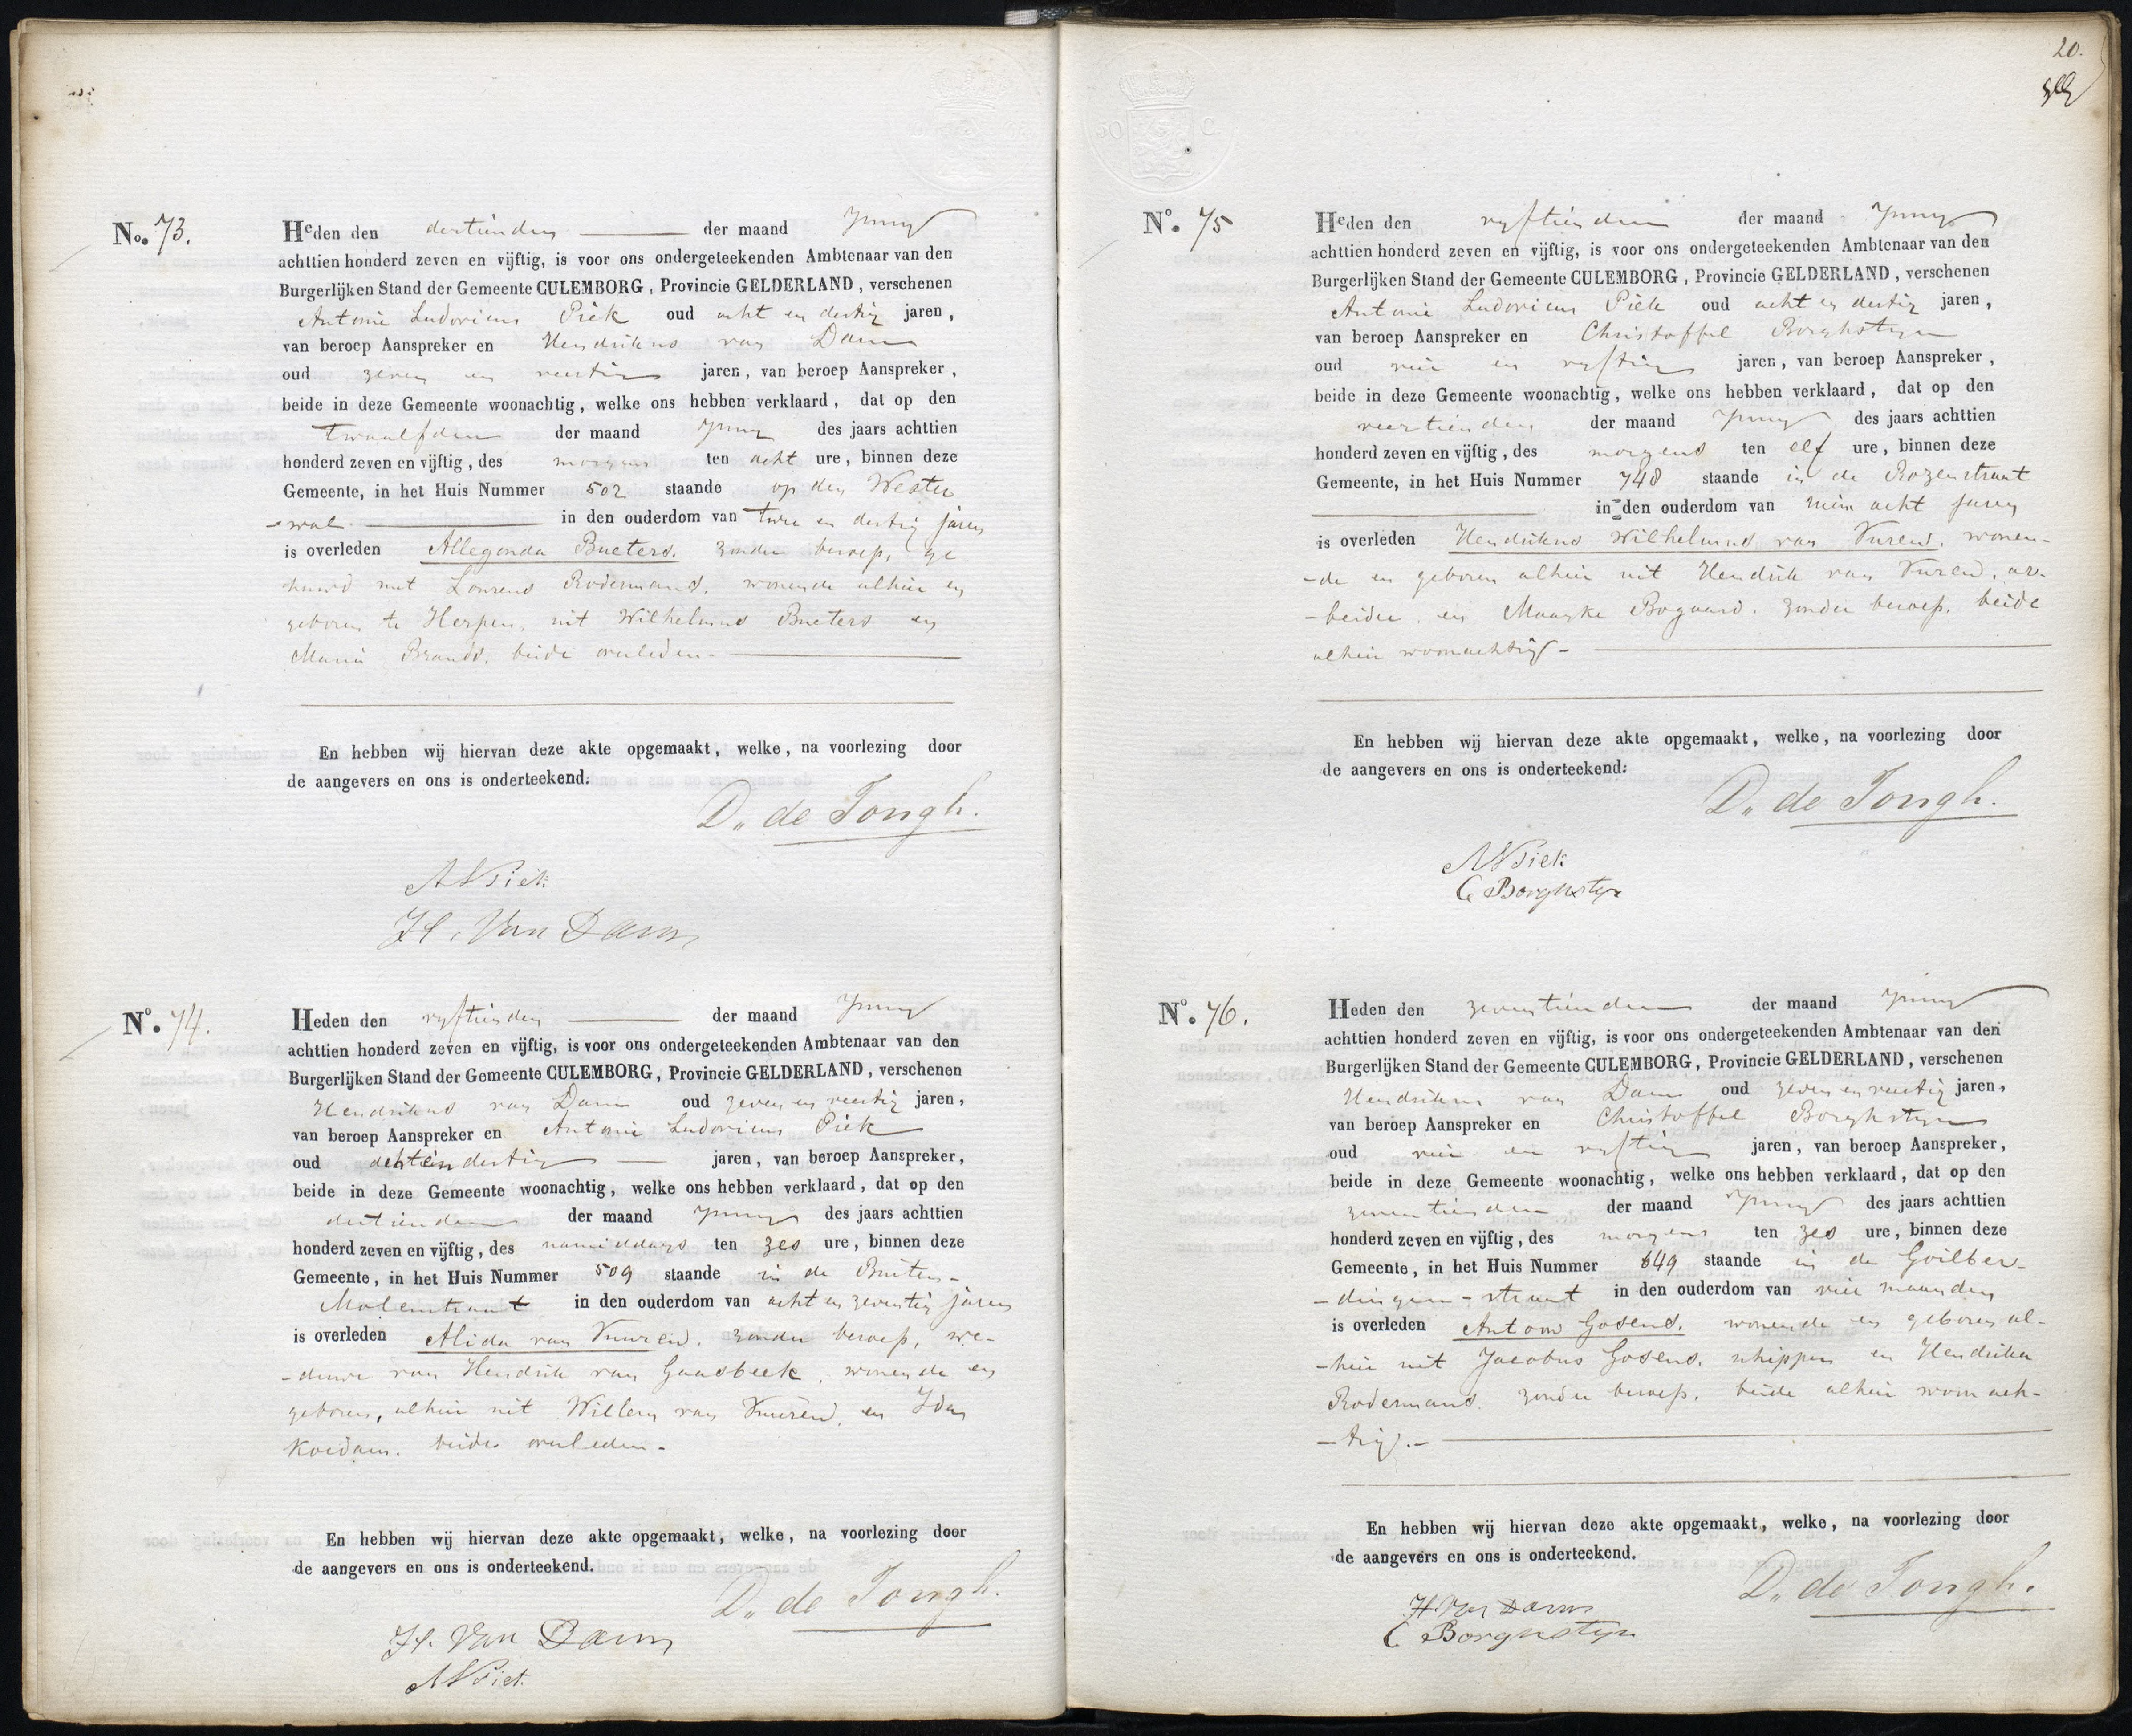 No. 73.
Heden den dertienden der maand Juny
achttien honderd zeven en vijftig, is voor ons ondergeteekenden Ambtenaar van den
Burgerlijken Stand der Gemeente CULEMBORG, Provincie GELDERLAND, verschenen
Antonie Ludovicus Piek oud acht en dertig jaren,
van beroep Aanspreker en Hendrikus van Dam
oud zeven en veertig jaren, van beroep Aanspreker,
beide in deze Gemeente woonachtig, welke ons hebben verklaard, dat op den
twaalfden der maand Juny des jaars achttien
honderd zeven en vijftig, des morgens ten acht ure, binnen deze
Gemeente, in het Huis Nummer 502 staande op den Wester
-wal in den ouderdom van twee en dertig jaren
is overleden Allegonda Bueters, zonder beroep, ge
huwd met Lourens Rodermans, wonende alhier en
geboren te Herpen, uit Wilhelmus Bueters en
Maria Brands, beide overleden.-
En hebben wij hiervan deze akte opgemaakt, welke, na voorlezing door
de aangevers en ons is onderteekend.
D. de Jongh.
A L Piek
H. Van Dam
No. 74.
Heden den vyftienden der maand Juny
achttien honderd zeven en vijftig, is voor ons ondergeteekenden Ambtenaar van den
Burgerlijken Stand der Gemeente CULEMBORG, Provincie GELDERLAND, verschenen
Hendrikus van Dam oud zeven en veertig jaren,
van beroep Aanspreker en Antonie Ludovicus Piek
oud acht en dertig jaren, van beroep Aanspreker,
beide in deze Gemeente woonachtig, welke ons hebben verklaard, dat op den
dertienden der maand Juny des jaars achttien
honderd zeven en vijftig, des namiddags ten zes ure, binnen deze
Gemeente, in het Huis Nummer 509 staande in de Buiten-
Molenstraat in den ouderdom van acht en zeventig jaren
is overleden Alida van Vuuren, zonder beroep, we-
-duwe van Hendrik van Gaasbeek, wonende en
geboren, alhier uit Willem van Vuuren, en Ida
Koedam, beide overleden.-
En hebben wij hiervan deze akte opgemaakt, welke, na voorlezing door
de aangevers en ons is onderteekend.
D. de Jongh.
H. Van Dam
A L Piek
20.
No. 75
Heden den vyftienden der maand Juny
achttien honderd zeven en vijftig, is voor ons ondergeteekenden Ambtenaar van den
Burgerlijken Stand der Gemeente CULEMBORG, Provincie GELDERLAND, verschenen
Antonie Ludovicus Piek oud acht en dertig jaren,
van beroep Aanspreker en Christoffel Borghstyn
oud vier en vyftig jaren, van beroep Aanspreker,
beide in deze Gemeente woonachtig, welke ons hebben verklaard, dat op den
veertienden der maand Juny des jaars achttien
honderd zeven en vijftig, des morgens ten elf ure, binnen deze
Gemeente, in het Huis Nummer 748 staande in de Rozenstraat
in den ouderdom van ruim acht jaren
is overleden Hendrikus Wilhelmus van Vuren, wonen-
-de en geboren alhier uit Hendrik van Vuren, ar-
-beider, en Maayke Bogaard, zonder beroep, beide
alhier woonachtig.-
En hebben wij hiervan deze akte opgemaakt, welke, na voorlezing door
de aangevers en ons is onderteekend.
D. de Jongh.
A L Piek
C Borghstyn
No. 76.
Heden den zeventienden der maand Juny
achttien honderd zeven en vijftig, is voor ons ondergeteekenden Ambtenaar van den
Burgerlijken Stand der Gemeente CULEMBORG, Provincie GELDERLAND, verschenen
Hendrikus van Dam oud zeven en veertig jaren,
van beroep Aanspreker en Christoffel Borghstyn
oud vier en vyftig jaren, van beroep Aanspreker,
beide in deze Gemeente woonachtig, welke ons hebben verklaard, dat op den
zeventienden der maand Juny des jaars achttien
honderd zeven en vijftig, des morgens ten zes ure, binnen deze
Gemeente, in het Huis Nummer 649 staande in de Goilber-
-dingen-straat in den ouderdom van vier maanden
is overleden Antoon Gosens, wonende en geboren al-
-hier uit Jacobus Gosens, schipper en Hendrika
Rodermans, zonder beroep, beide alhier woonach-
-tig.-
En hebben wij hiervan deze akte opgemaakt, welke, na voorlezing door
de aangevers en ons is onderteekend.
D. de Jongh.
H Van Dam
C Borghstyn